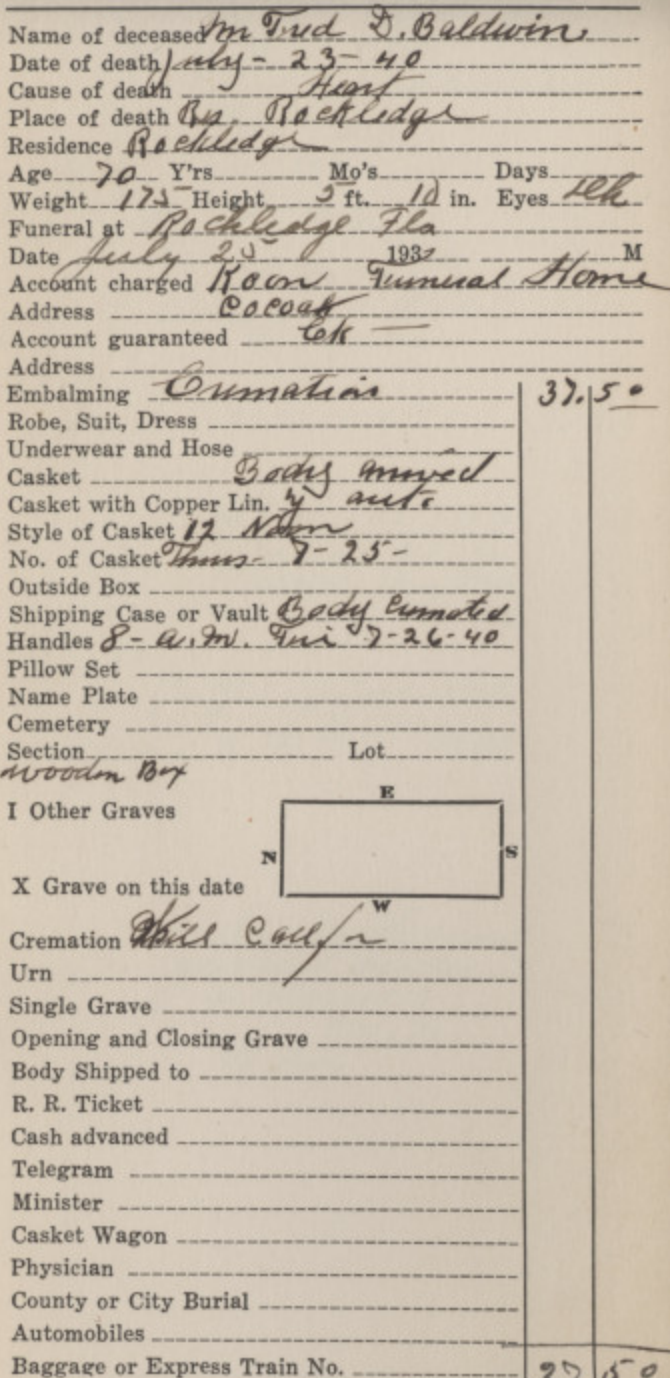 Name of deceased Mr Fred D. Baldwin
Date of death July - 23 - 40
Cause of death Heart
Place of death Rs. Rockledge
Residence Rockledge
Age 70 Y'rs Mo's Days
Weight 175 Height 5 ft. 10 in. Eyes
Funeral at Rockledge Fla
Date July 25 193 M
Account charged Koon Funeral Home
Address Cocoa
Account guaranteed Ck —
Address
Embalming Cremation 37.50
Robe, Suit, Dress
Underwear and Hose
Casket Body arrived
Casket with Copper Lin. by auto
Style of Casket 12 Noon
No. of Casket Thurs - 7-25-
Outside Box
Shipping Case or Vault Body Cremated
Handles 8 - a.m. Fri 7-26-40
Pillow Set
Name Plate
Cemetery
Section Lot
Wooden Box
E
I Other Graves
N S
X Grave on this date
W
Cremation Will Call for
Urn
Single Grave
Opening and Closing Grave
Body Shipped to
R. R. Ticket
Cash advanced
Telegram
Minister
Casket Wagon
Physician
County or City Burial
Automobiles
Baggage or Express Train No. 37 50